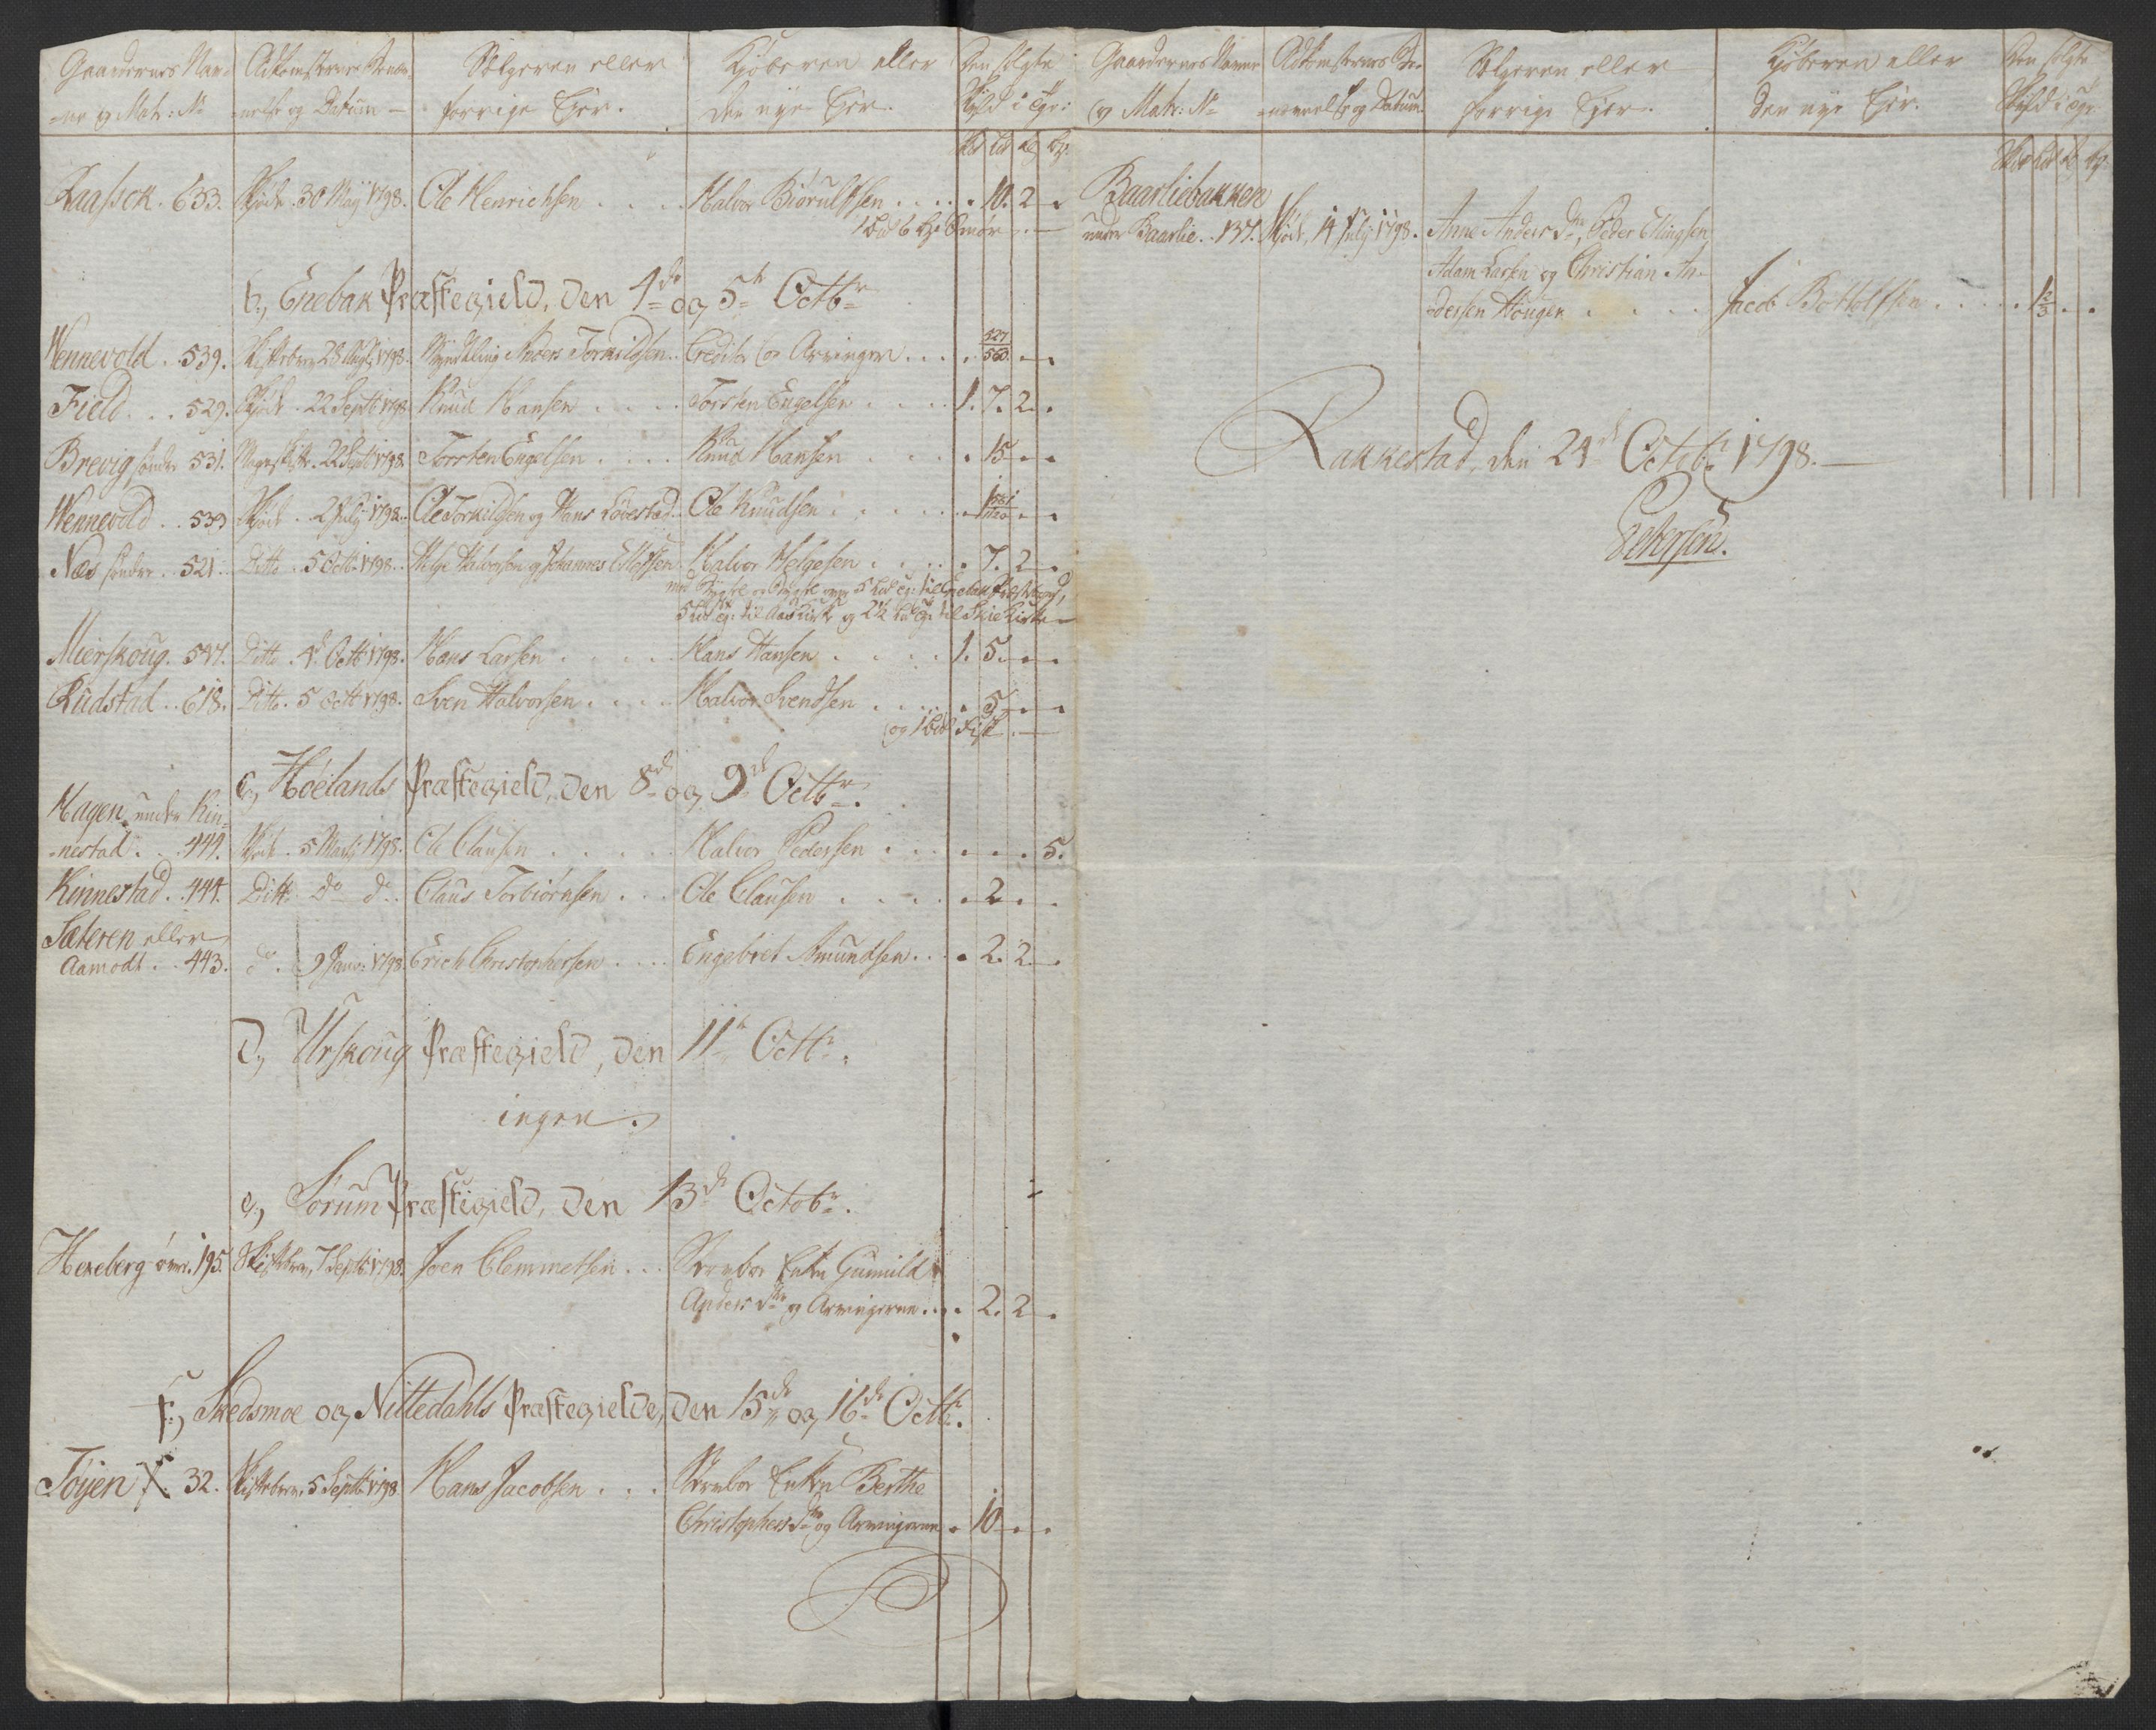 Gaardernes Nav-
-ne og Matr: No
Adkomsternes Benæv-
-nelse og Datum
Sælgeren eller
forrige Ejer.
Kjöberen eller
den nye Ejer.
Den solgte
Skyld i Tge:
Raafsok. 633. Skjöde. 30 May 1798. Ole Henrichsen . . . . Halvor Biörulfsen . . . . . 10. 2 .
1 Lod 6 Bz: Smör . —
b., Enebak Præstegield, den 4de og 5te Octbr
Wennevold. 539. Skiftebrev 28 1798. Myndtling Anders Torkildsen.. Creditor og Arvinger . . . . 527/560 . .
Field . . . 529. Skjöde. 22 Septb 1798 Knud Hansen . . . . Torsten Engelsen . . . . 1. 7. 2. .
Brevig söndre 531. Mageskifte. 22 Septb 1798. Torsten Engelsen . . . . Knud Hansen . . . . 15 . .
Wennevold . . 539 Skjöde . 2 July 1798.. Ole Torkildsen og Hans Lövestad.. Ole Knudsen . . . . . .
Næs söndre . 521.. Ditto . 5 Octb 1798.. Helge Halvorsen og Johannes Ellefsen Halvor Helgesen . . . . 7. 2 .
med Bygsel og over 5 Lod Tg: til Enebak Præstegaard,
5 Lod Tg: til Aas Kirke og 2½ Lod Tg: til Skie Kirke
Mierskoug. 547. Ditto . 4de Octb 1798. Hans Larsen . . . . Hans Hansen . . . . 1. 5. . .
Rudstad . . 618. Ditto. 5 Octb 1798. Sven Halvorsen . . . . Halvor Svendsen . . . . 5 . .
og 1 Lod Fisk . —
c., Höelands Præstegield, den 8de og 9de Octbr.
Hagen under Kin-
-nestad . . . 444. Skjöde . 5 Martj 1798. Ole Clausen . . . . Halvor Pedersen . . . . . . 5.
Kinnestad . . 444. Ditto do do. Claus Torbiörnsen . . . Ole Clausen . . . . . 2 . . .
Sæteren eller
Aamodt . . 443. do. 9 Janv: 1798 Erich Christophersen . . . . Engebret Amundsen . . . 2. 2 .
d., Urskoug Præstegield, den 11te Octbr.
ingen.
e., Sörum Præstegield, den 13de Octobr.
Hexeberg övre. 195. Skiftebrev, 7 Septb 1798. Joen Clemmetsen . . . Stervboe Enken Gunild
Anders Dtr og Arvingerne . . . 2. 2 .
f., Skedsmoe og Nittedahls Præstegielde, den 15de og 16de Octbr.
Töyen 32. Skiftebrev. 5 Septb 1798 Hans Jacobsen . . . Stervboe Enken Berthe
Christophers Dtr og Arvingerne . 10 . .
Gaardernes Navne
og Matr: No
Adkomsternes Be-
-nævnelse og Datum
Sælgeren eller
forrige Ejer.
Kjöberen eller
den nye Ejer.
Den solgte
Skyld i Tge
Baarliebakken
under Baarlie . . 137. Skjöde, 14 July 1798. Anne Anders Dtr, Peder Ellingsen
Adam Larsen og Christian An-
-dersen Hougen . . . . Jacob Bottolfsen . . . . . 1 2/3 . .
Rakkestad, den 24de Octobr 1798. —
Petersen.